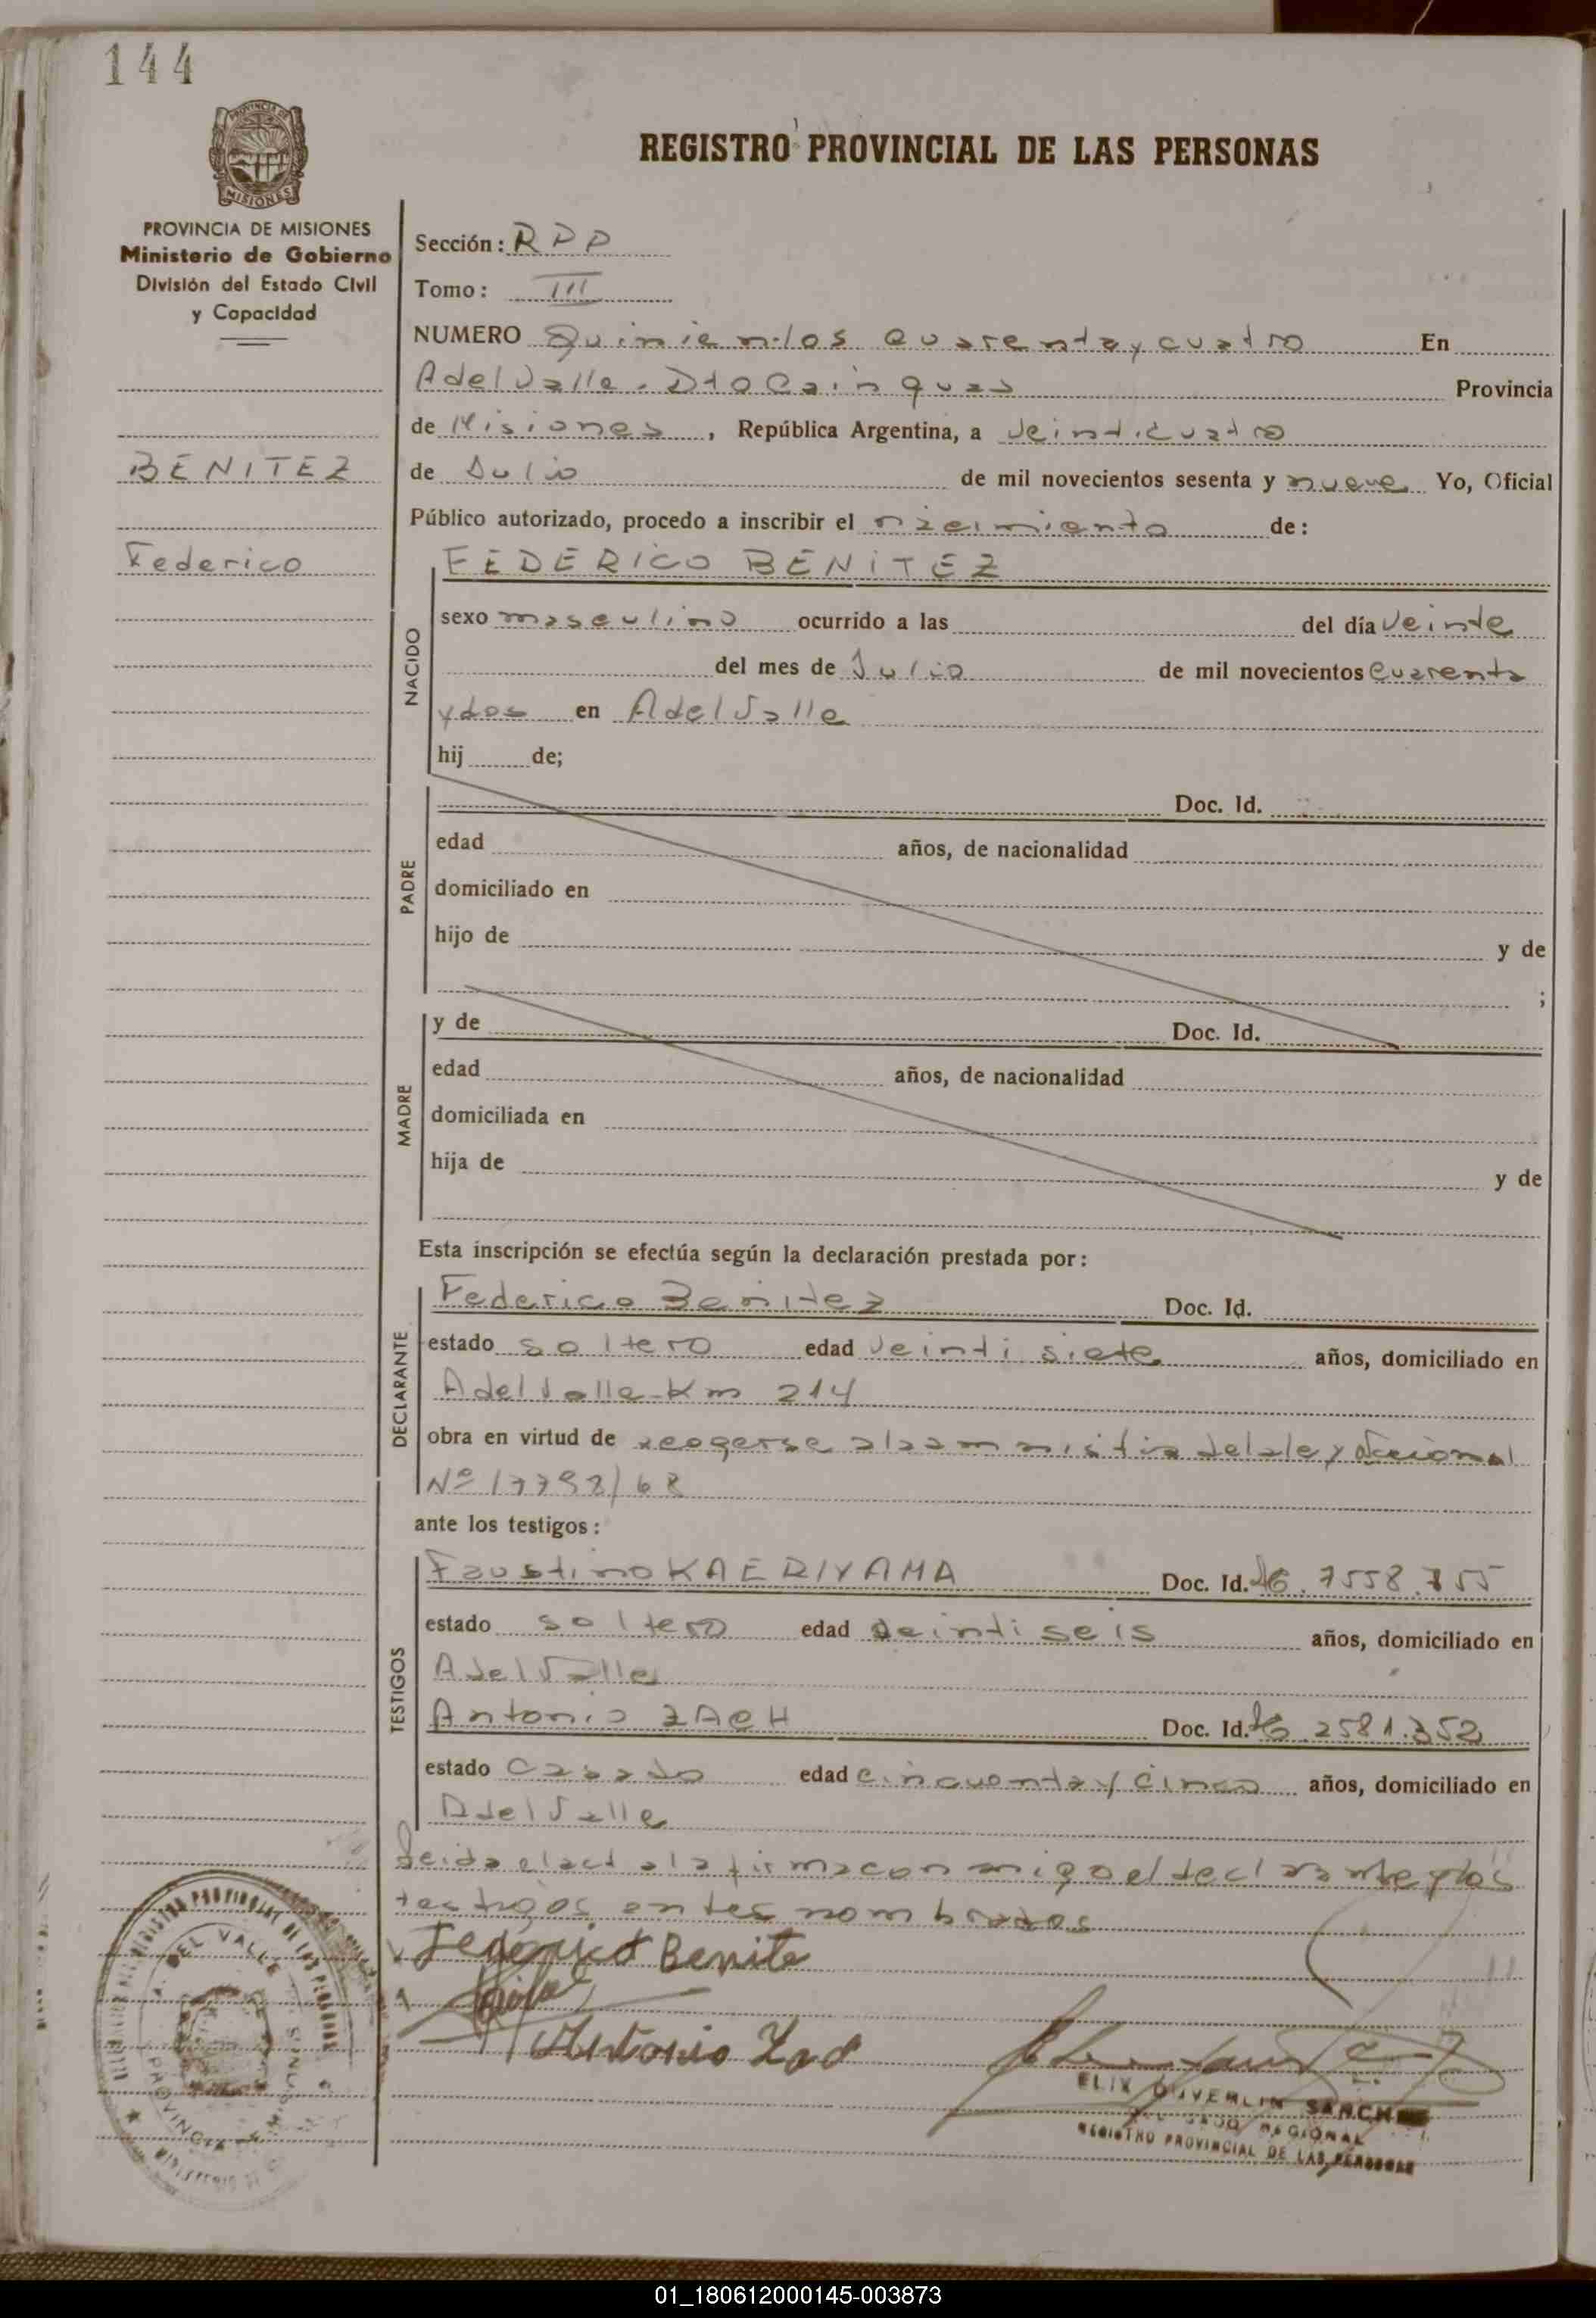 144
PROVINCIA DE MISIONES
MISIONES
REGISTRO PROVINCIAL DE LAS PERSONAS
PROVINCIA DE MISIONES
Ministerio de Gobierno
División del Estado Civil
y Capacidad
BENITEZ
Federico
Sección: RPP
Tomo: III
NUMERO Quinientos cuarenta y cuatro En
A del Valle. Dto Cainguas Provincia
de Misiones, República Argentina, a Veinticuatro
de Julio de mil novecientos sesenta y nueve Yo, Oficial
Público autorizado, procedo a inscribir el nacimiento de:
FEDERICO BENITEZ
NACIDO
sexo masculino ocurrido a las del día Veinte
del mes de Julio de mil novecientos cuarenta
y dos en A del Valle
hij de;
PADRE
Doc. Id.
edad años, de nacionalidad
domiciliado en
hijo de y de
;
MADRE
y de Doc. Id.
edad años, de nacionalidad
domiciliada en
hija de y de
Esta inscripción se efectúa según la declaración prestada por:
DECLARANTE
Federico Benitez Doc. Id.
estado soltero edad Veinti siete años, domiciliado en
A del Valle-Km 214
obra en virtud de acogerse a la amnistia de la ley Nacional
Nº 17798/68
ante los testigos:
TESTIGOS
Faustino KAERIYAMA Doc. Id. 7558.755
estado soltero edad veinti seis años, domiciliado en
A del Valle
Antonio ZACH Doc. Id. 2581.352
estado casado edad cincuenta y cinco años, domiciliado en
A del Valle
Leida el acta la firma con migo el declarante y los
testigos antes nombrados
Federico Benite
Antonio Zach
SANCHEZ
REGIONAL
REGISTRO PROVINCIAL DE LAS PERSONAS
DEL VALLE
PROVINCIA
01_180612000145-003873